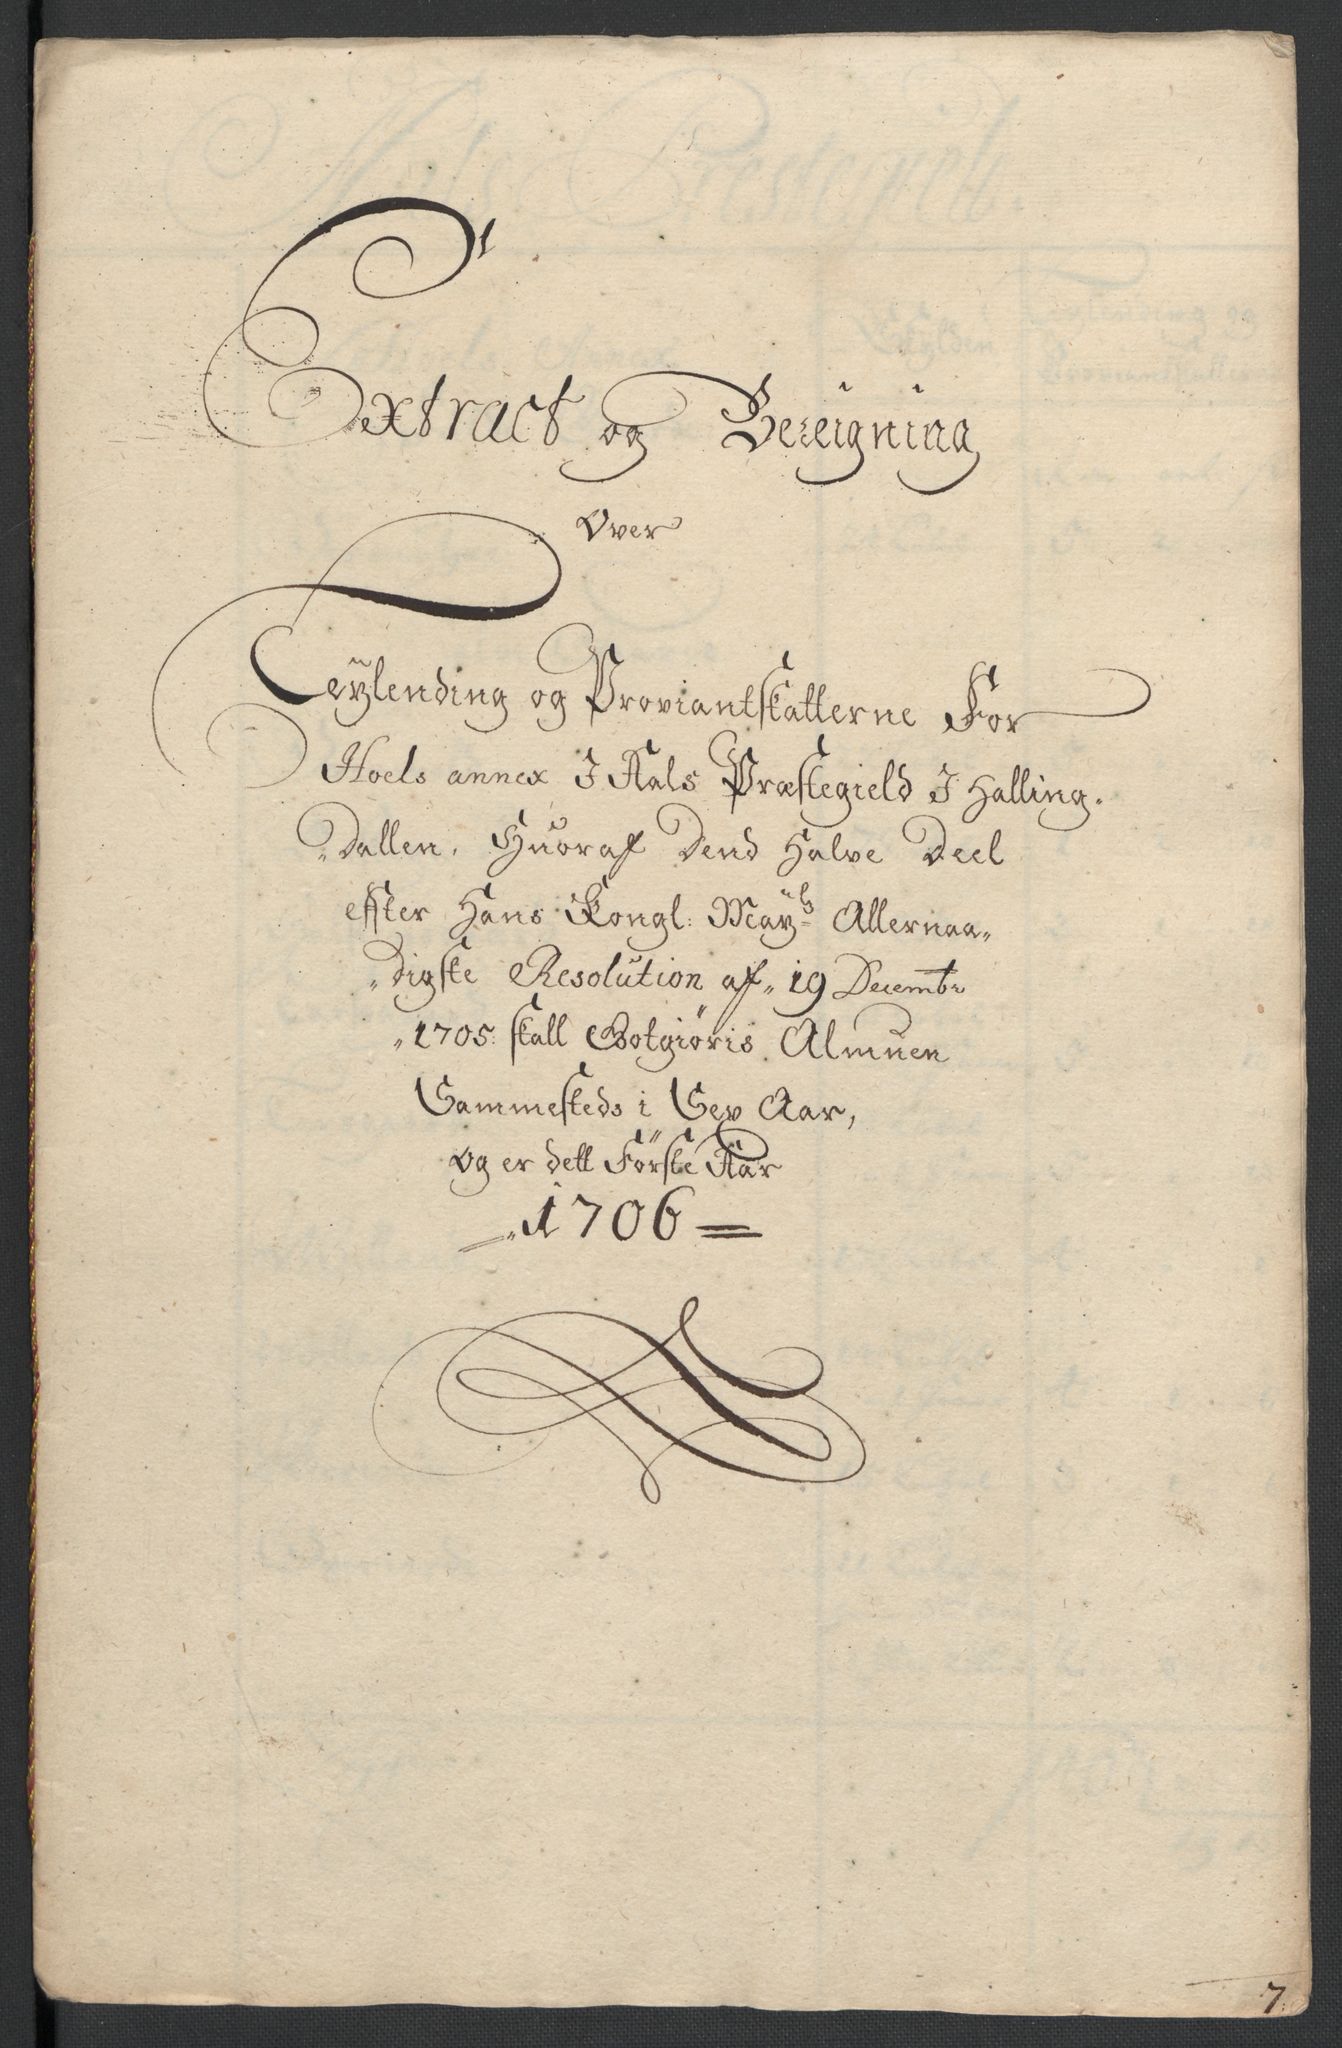 Extract og Bereigning
Over
Leylending og Proviantskatterne For
Hoels annex I Aals Præstegield I Halling-
„Dallen, Huoraf Dend Halve Deel
efter Hans Kongl: Mayts Allernaa„
„Digste Resolution af „19 Decembr
„1705: skall Gotgiöris Almuen
Sammesteds i Sex Aar,
Og er dett Förste Aar
„1706
7